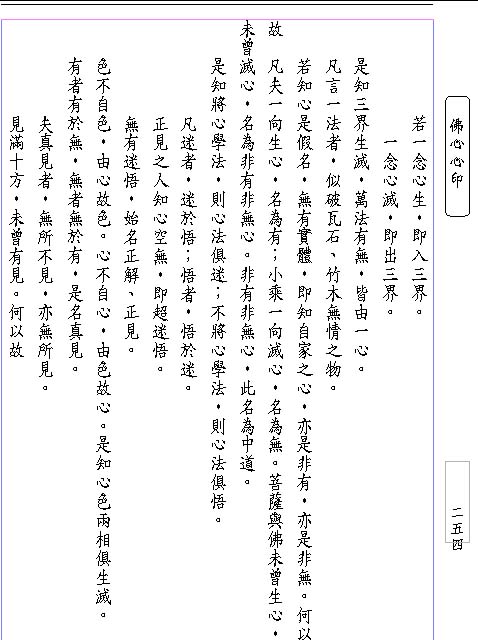 佛心心印
二五四
若一念心生，即入三界。
一念心滅，即出三界。
是知三界生滅，萬法有無，皆由一心。
凡言一法者，似破瓦石、竹木無情之物。
若知心是假名，無有實體，即知自家之心，亦是非有，亦是非無。何以
故　凡夫一向生心，名為有；小乘一向滅心，名為無。菩薩與佛未曾生心，
未曾滅心，名為非有非無心。非有非無心，此名為中道。
是知將心學法，則心法俱迷；不將心學法，則心法俱悟。
凡迷者，迷於悟；悟者，悟於迷。
正見之人知心空無，即超迷悟。
無有迷悟，始名正解、正見。
色不自色，由心故色。心不自心，由色故心。是知心色兩相俱生滅。
有者有於無，無者無於有，是名真見。
夫真見者，無所不見，亦無所見。
見滿十方，未曾有見。何以故